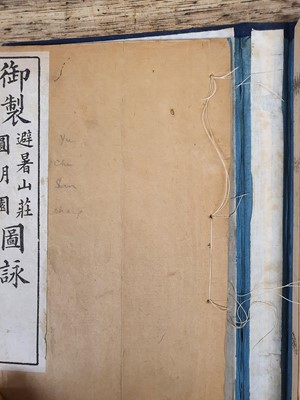 御製
避暑山莊
圓明園
圖詠
Yu